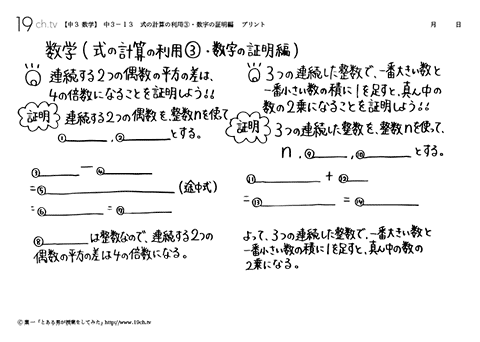 19 ch.tv 【中3 数学】 中3-13 式の計算の利用③・数字の証明編 プリント 月 日
数学(式の計算の利用③・数字の証明編)
連続する2つの偶数の平方の差は、
4の倍数になることを証明しよう!!
証明 連続する2つの偶数を、整数nを使って
① , ② とする。
③ − ④
=⑤ (途中式)
=⑥ =⑦
⑧ は整数なので、連続する2つの
偶数の平方の差は4の倍数になる。
3つの連続した整数で、一番大きい数と
一番小さい数の積に1を足すと、真ん中の
数の2乗になることを証明しよう!!
証明 3つの連続した整数を、整数nを使って、
n , ⑨ , ⑩ とする。
⑪ + ⑫
=⑬ =⑭
よって、3つの連続した整数で、一番大きい数と
一番小さい数の積に1を足すと、真ん中の数の
2乗になる。
Ⓒ 葉一「とある男が授業をしてみた」http://www.19ch.tv